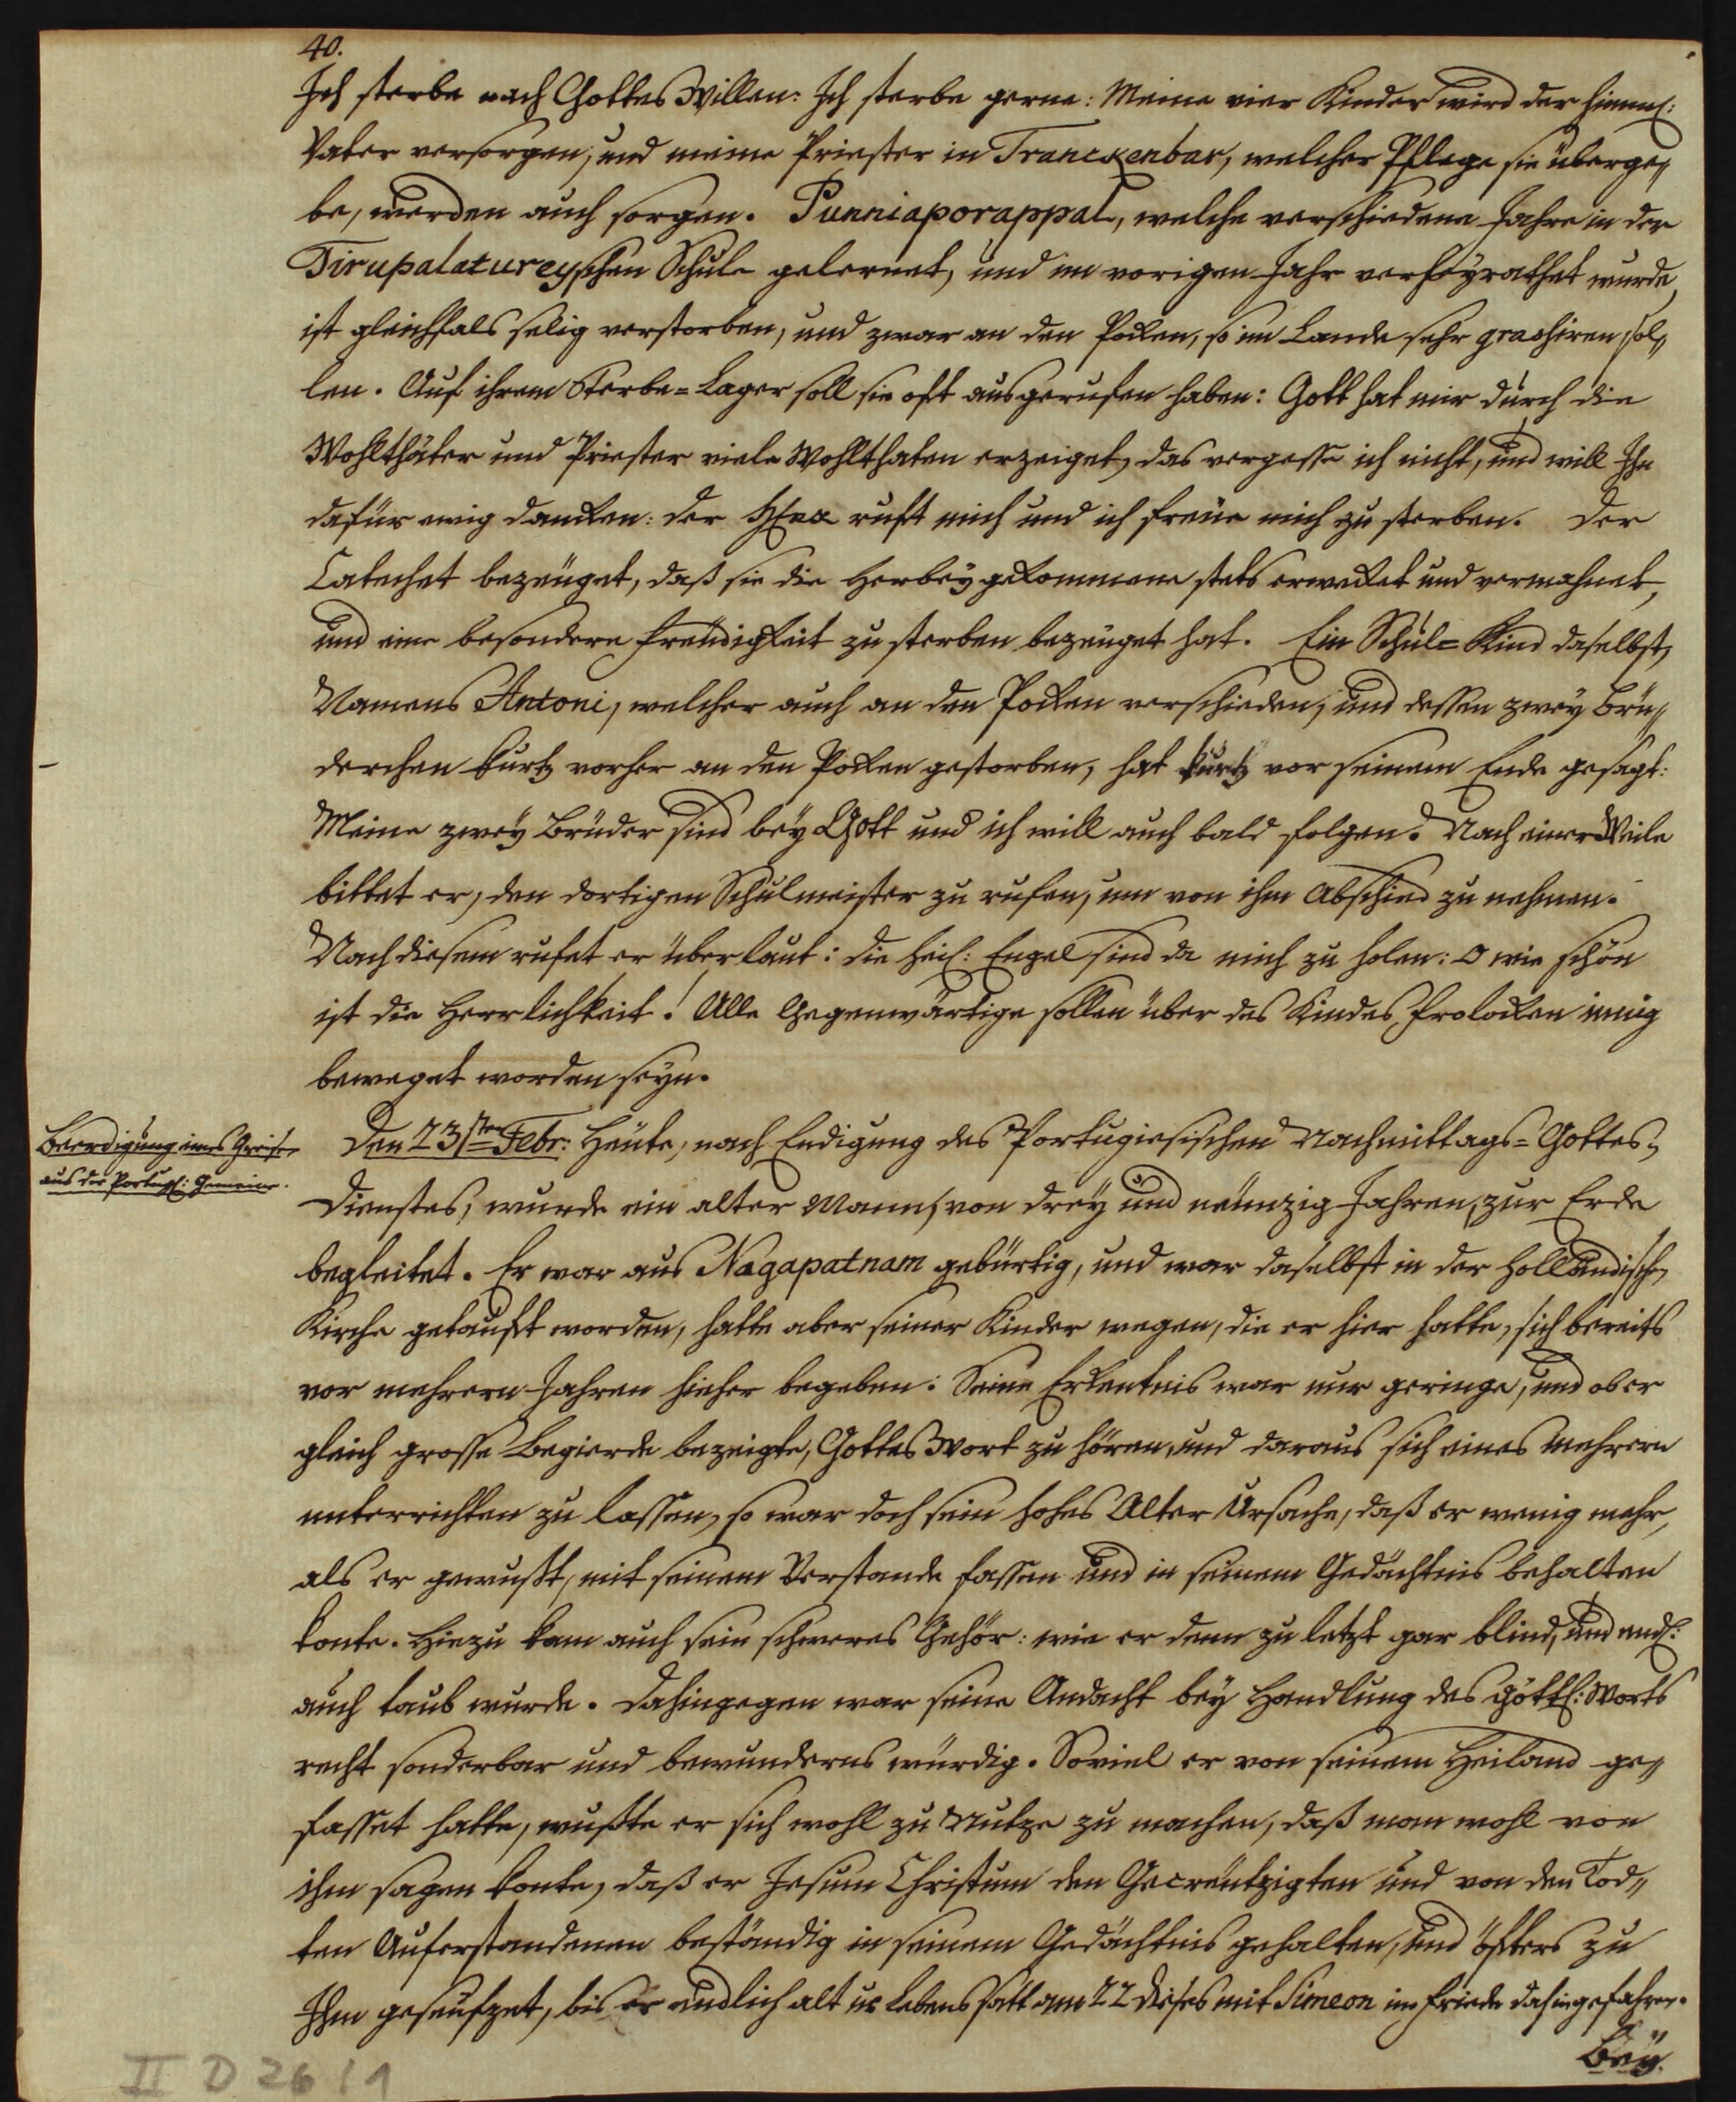 40.
Ich sterbe nach Gottes Willen: Ich sterbe gerne: Meine vier Kinder wird der himml:
Vater versorgen, und meine Priester in Tranckenbar, welcher Pflege sie überge„
be, werden auch sorgen. Punniaporappal, welche verschiedene Jahre in der
Tirupalatureyschen Schule gelernet, und im vorigen Jahr verheyrathet wurde,
ist gleichfals selig verstorben, und zwar an den Pocken, so im Lande sehr grashiren sol„
len. Auf ihrem Sterbe=Lager soll sie oft ausgerufen haben: Gott hat mir durch die
Wohlthäter und Priester viele Wohlthaten erzeiget, das vergesse ich nicht, und will Ihn
dafür ewig dancken: der HErr ruft mich und ich freue mich zu sterben. Der
Catechet bezeuget, daß sie die Herbeygekommene stets erwecket und vermahnet,
und eine besondere Freudigkeit zu sterben bezeuget hat. Ein Schul=Kind daselbst,
Namens Antoni, welcher auch an den Pocken verschieden, und dessen zwey Brü„
derchen kurtz vorher an den Pocken gestorben, hat kurtz vor seinem Ende gesagt:
Meine zwey Brüder sind bey Gott und ich will auch bald folgen. Nach einer Weile
bittet er, den dortigen Schulmeister zu rufen, um von ihm Abschied zu nehmen.
Nach diesem rufet er überlaut: die heil: Engel sind da mich zu holen: O wie schön
ist die Herrlichkeit! Alle Gegenwärtige sollen über des Kindes Frolocken innig
beweget worden seyn.
Beerdigung eines Greises
aus der Portugl: Gemeine.
Den 23sten Febr: Heute, nach Endigung des Portugiesischen Nachmittags=Gottes„
Dienstes, wurde ein alter Mann, von drey und neunzig Jahren, zur Erde
begleitet. Er war aus Nagapatnam gebürtig, und war daselbst in der Holländisch
Kirche getauft worden, hatte aber seiner Kinder wegen, die er hier hatte, sich bereits
vor mehrern Jahren hieher begeben: Seine Erkentnis war nur geringe, und ob er
gleich grosse Begierde bezeigte, Gottes Wort zu hören, und daraus sich eines mehrern
unterrichten zu lassen, so war doch sein hohes Alter Ursache, daß er wenig mehr,
als er gewußt, mit seinem Verstande fassen und in seinem Gedächtnis behalten
konte. Hiezu kam auch sein schweres Gehör: wie er denn zu letzt gar blind, und endl:
auch taub wurde. Dahingegen war seine Andacht bey Handlung des göttl: Worts
recht sonderbar und bewunderns würdig. Soviel er von seinem Heiland ge„
fasset hatte, wußte er sich wohl zu Nutze zu machen, daß man wohl von
ihm sagen konte, daß er Jesum Christum den Gecreutzigten und von den Tod„
ten Auferstandenen beständig in seinem Gedächtnis gehalten, und öfters zu
Ihm geseufzet, bis er endlich alt u: Lebens satt am 22 dieses mit Simeon im Friede dahingefahren.
Bey.
II D 26/1